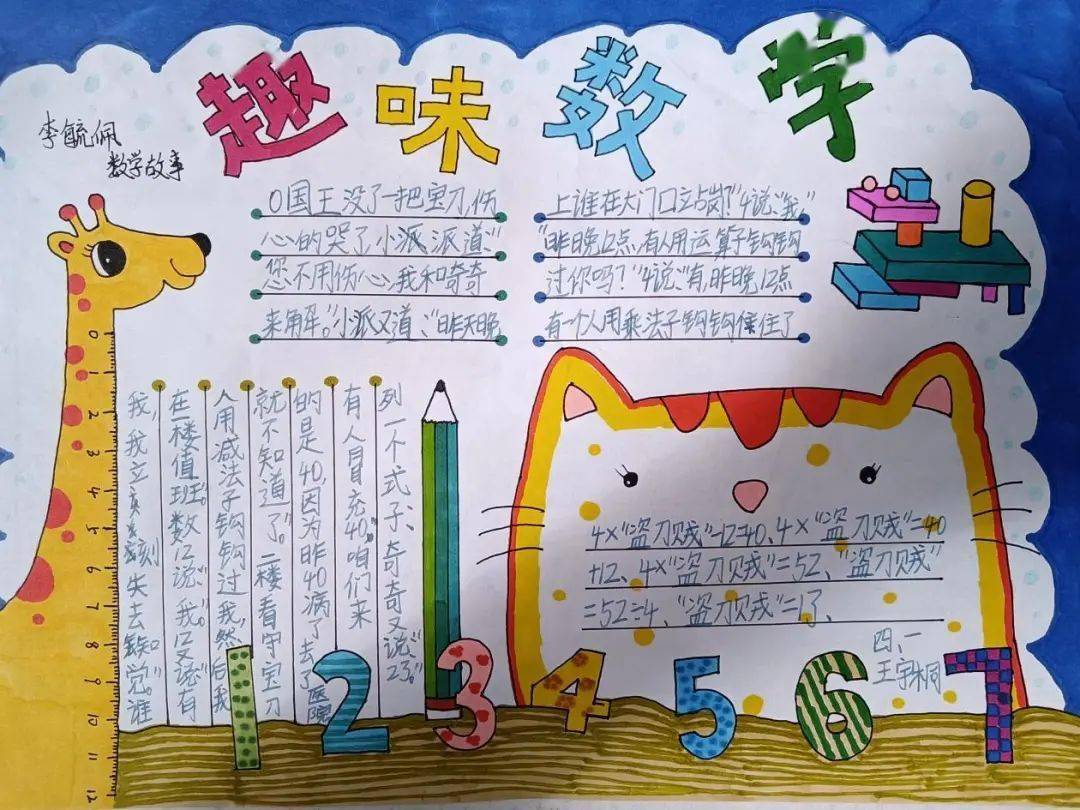 趣味数学
李毓佩
数学故事
0国王没了一把宝刀,伤
心的哭了,小派派道:"
您不用伤心,我和奇奇
来解.."小派又道:"昨天晚
上谁在大门口立占岗?"4说:"我"
"昨晚12点,有人用运算子钩钩
过你吗?"4说:"有,昨晚12点
有一个人用乘法子钩钩倴住了
我,我立刻失去知觉。"谁
在二楼值班。"数12说:"我。"12又说:"有
人用减法子钩钩过我,然后我
就不知道了。"二楼看守宝刀
的是40,因为昨40病了去了医院
有人冒充40。"咱们来
列一个式子、奇奇又说:"23。"
4×"盗刀贼"-12=40、4×"盗刀贼"=40
+12、4×"盗刀贼"=52、"盗刀贼"
=52÷4、"盗刀贼"=13、
四、一
王宇桐
0
1
2
3
4
5
6
7
8
9
10
11
12
1 2 3 4 5 6 7